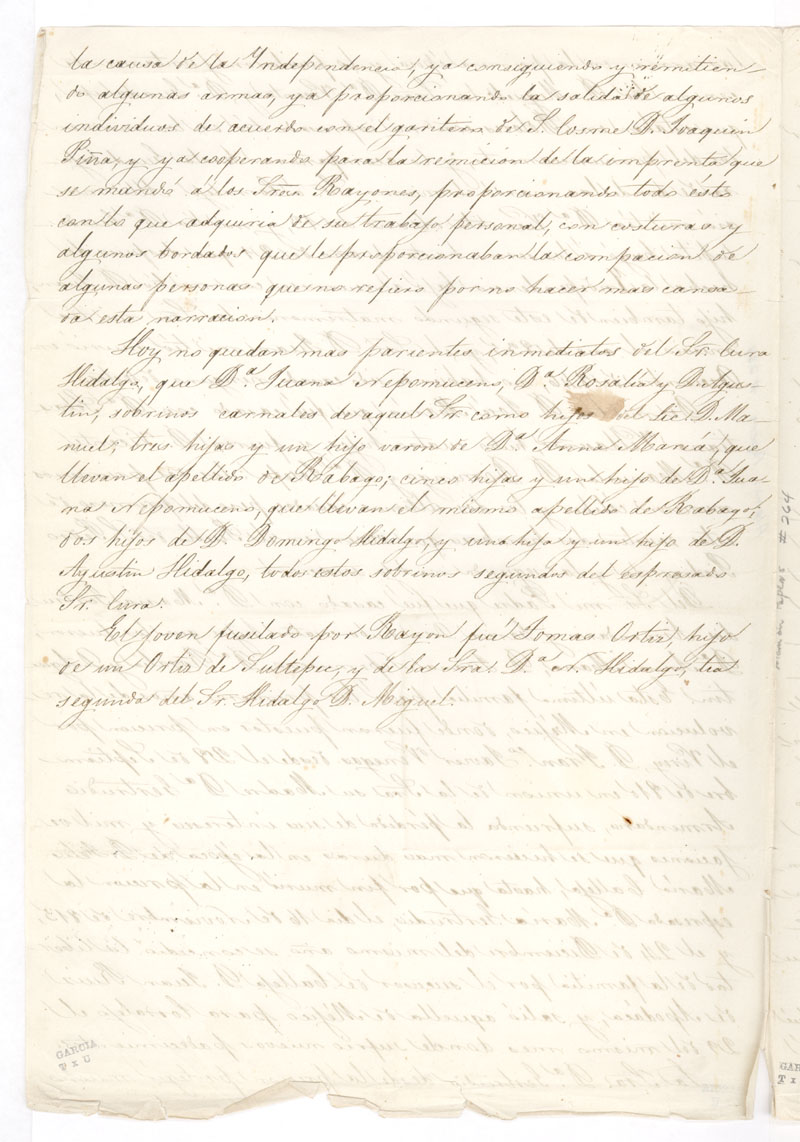 la causa de la Independencia, ya consiguiendo y remitien-
do algunas armas, ya proporcionando la salida de algunos
individuos de acuerdo con el garitero de S. Cosme D. Joaquin
Piña, y ya cooperando para la remicion de la imprenta que
se mandó á los Sres. Rayones, proporcionando todo ésto
con lo que adquiria de su trabajo personal, con costuras y
algunos bordados que le proporcionaban la compacion de
algunas personas que no refiero por no hacer mas cansa-
da esta narracion.
Hoy no quedan mas parientes inmediatos del Sr. Cura
Hidalgo, que D.ª Juana Nepomuceno, D.ª Rosalia y D. Agus-
tin, sobrinos carnales de aquel Sr. como hijos del Lic. D. Ma-
nuel; tres hijas y un hijo varon de D.ª Anna Maria, que
llevan el apellido de Rábago; cinco hijas y un hijo de D.ª Jua-
na Nepomuceno, que llevan el mismo apellido de Rabago;
dos hijos de D. Domingo Hidalgo, y una hija y un hijo de D.
Agustin Hidalgo, todos estos sobrinos segundos del espresado
Sr. Cura.
El joven fusilado por Rayon fué Tomas Ortiz, hijo
de un Ortiz de Sultepec, y de la Sra. D.ª N. Hidalgo, tia
segunda del Sr. Hidalgo D. Miguel.
GARCIA
T x U
#264
GAR
T x